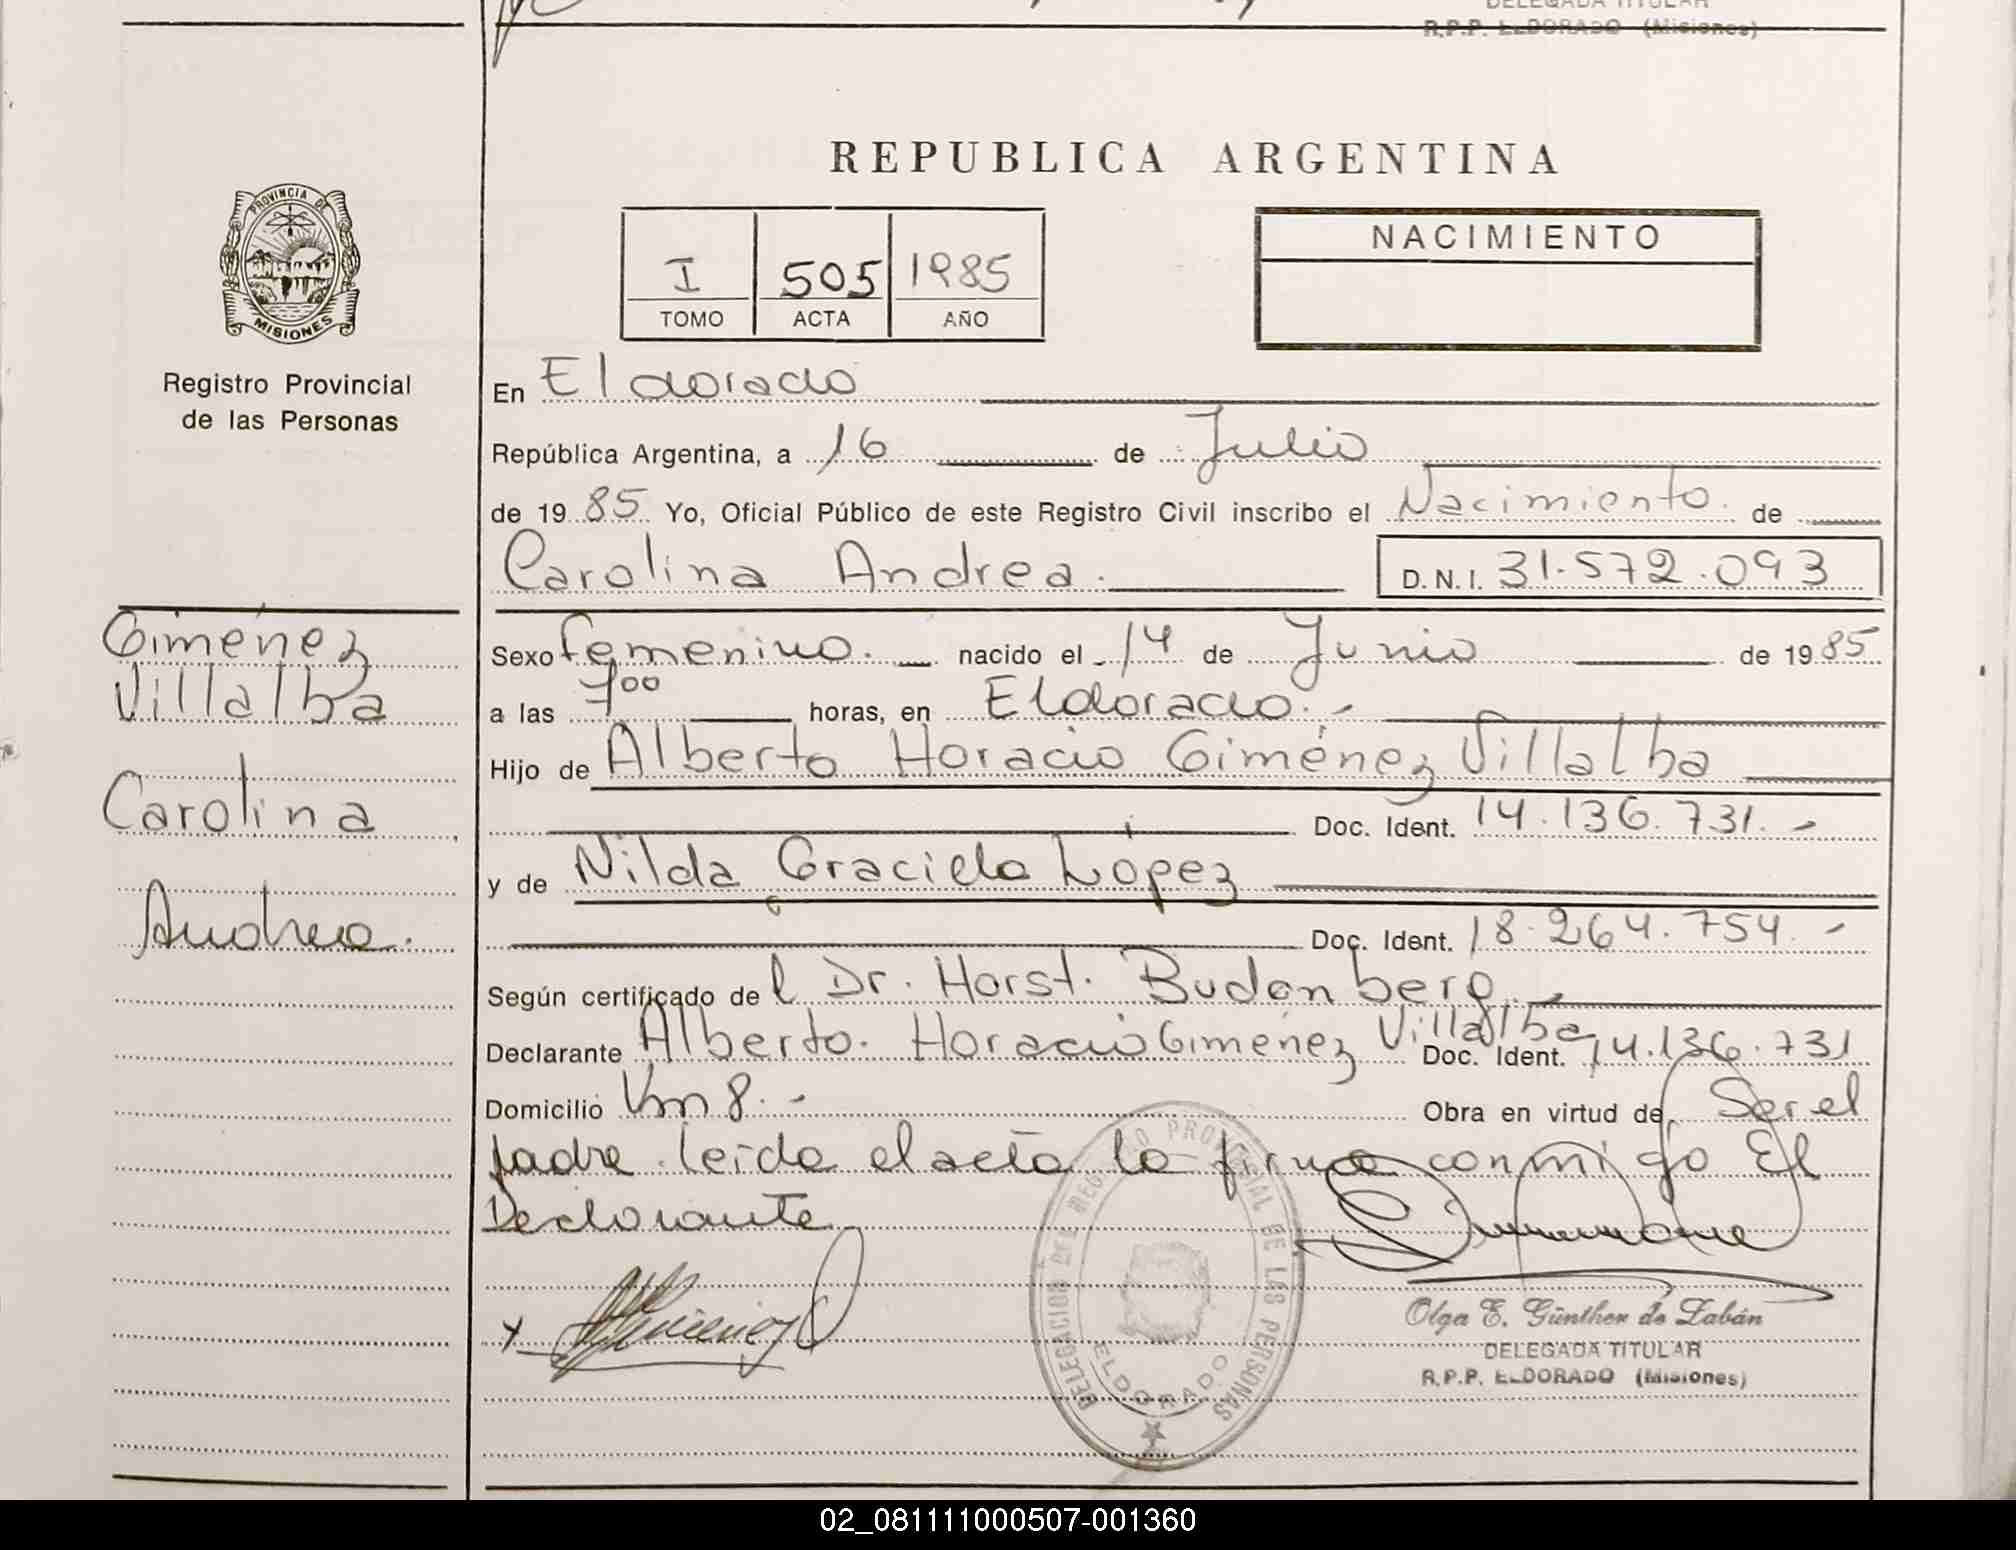 DELEGADA TITULAR
R.P.P. ELDORADO (Misiones)
REPUBLICA ARGENTINA
PROVINCIA DE
MISIONES
Registro Provincial
de las Personas
I 505 1985
TOMO ACTA AÑO
NACIMIENTO
En Eldorado
República Argentina, a 16 de Julio
de 1985 Yo, Oficial Público de este Registro Civil inscribo el Nacimiento. de
Carolina Andrea. D.N.I. 31.572.093
Giménez
Villalba
Carolina
Andrea.
Sexo femenino. nacido el 14 de Junio de 1985
a las 7 00 horas, en Eldorado.-
Hijo de Alberto Horacio Giménez Villalba
Doc. Ident. 14.136.731.-
y de Nilda Graciela López
Doc. Ident. 18.264.754.-
Según certificado de l Dr. Horst. Budenberg.-
Declarante Alberto. Horacio Giménez Villalba Doc. Ident. 14.136.731
Domicilio Km 8.- Obra en virtud de Ser el
padre. leída el acta la firma conmigo El
Declarante
x
DELEGACION DEL REGISTRO PROVINCIAL DE LAS PERSONAS
ELDORADO
Olga E. Günther de Zabán
DELEGADA TITULAR
R.P.P. ELDORADO (Misiones)
02_081111000507-001360